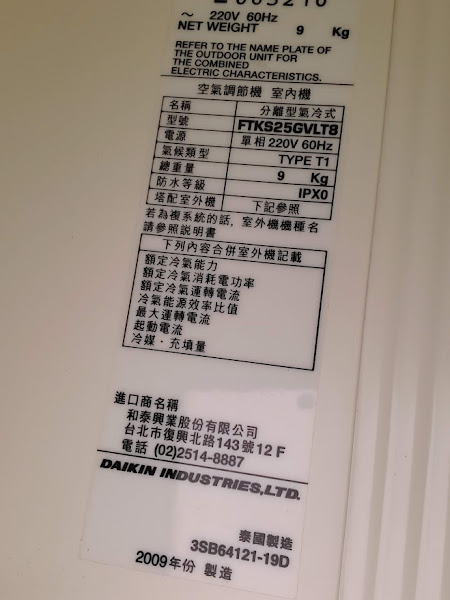 ～ 220V 60Hz
NET WEIGHT 9 Kg
REFER TO THE NAME PLATE OF
THE OUTDOOR UNIT FOR
THE COMBINED
ELECTRIC CHARACTERISTICS.
空氣調節機 室內機
名稱 分離型氣冷式
型號 FTKS25GVLT8
電源 單相220V 60Hz
氣候類型 TYPE T1
總重量 9 Kg
防水等級 IPX0
塔配室外機 下記參照
若為複系統的話，室外機機種名
請參照說明書
下列內容合併室外機記載
額定冷氣能力
額定冷氣消耗電功率
額定冷氣運轉電流
冷氣能源效率比值
最大運轉電流
起動電流
冷媒·充填量
進口商名稱
和泰興業股份有限公司
台北市復興北路143號12F
電話 (02)2514-8887
DAIKIN INDUSTRIES,LTD.
泰國製造
3SB64121-19D
2009年份 製造